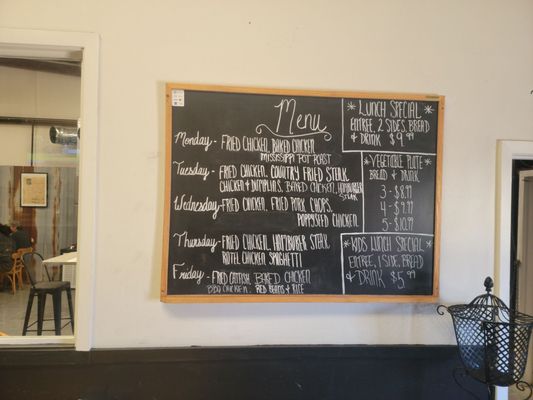 Menu
Monday - FRIED CHICKEN, BAKED CHICKEN
MISSISSIPPI POT ROAST
Tuesday - FRIED CHICKEN, COUNTRY FRIED STEAK
CHICKEN & DUMPLINS, BAKED CHICKEN, HAMBURGER
STEAK
Wednesday - FRIED CHICKEN, FRIED PORK CHOPS,
POPPYSEED CHICKEN
Thursday - FRIED CHICKEN, HAMBURGER STEAK,
ROTEL CHICKEN SPAGHETTI
Friday - FRIED CATFISH, BAKED CHICKEN
BBQ CHICKEN, RED BEANS & RICE
* LUNCH SPECIAL *
ENTREE, 2 SIDES, BREAD
& DRINK $9.99
* VEGETABLE PLATE *
BREAD & DRINK
3 - $8.99
4 - $9.99
5 - $10.99
* KIDS LUNCH SPECIAL *
ENTREE, 1 SIDE, BREAD
& DRINK $5.99